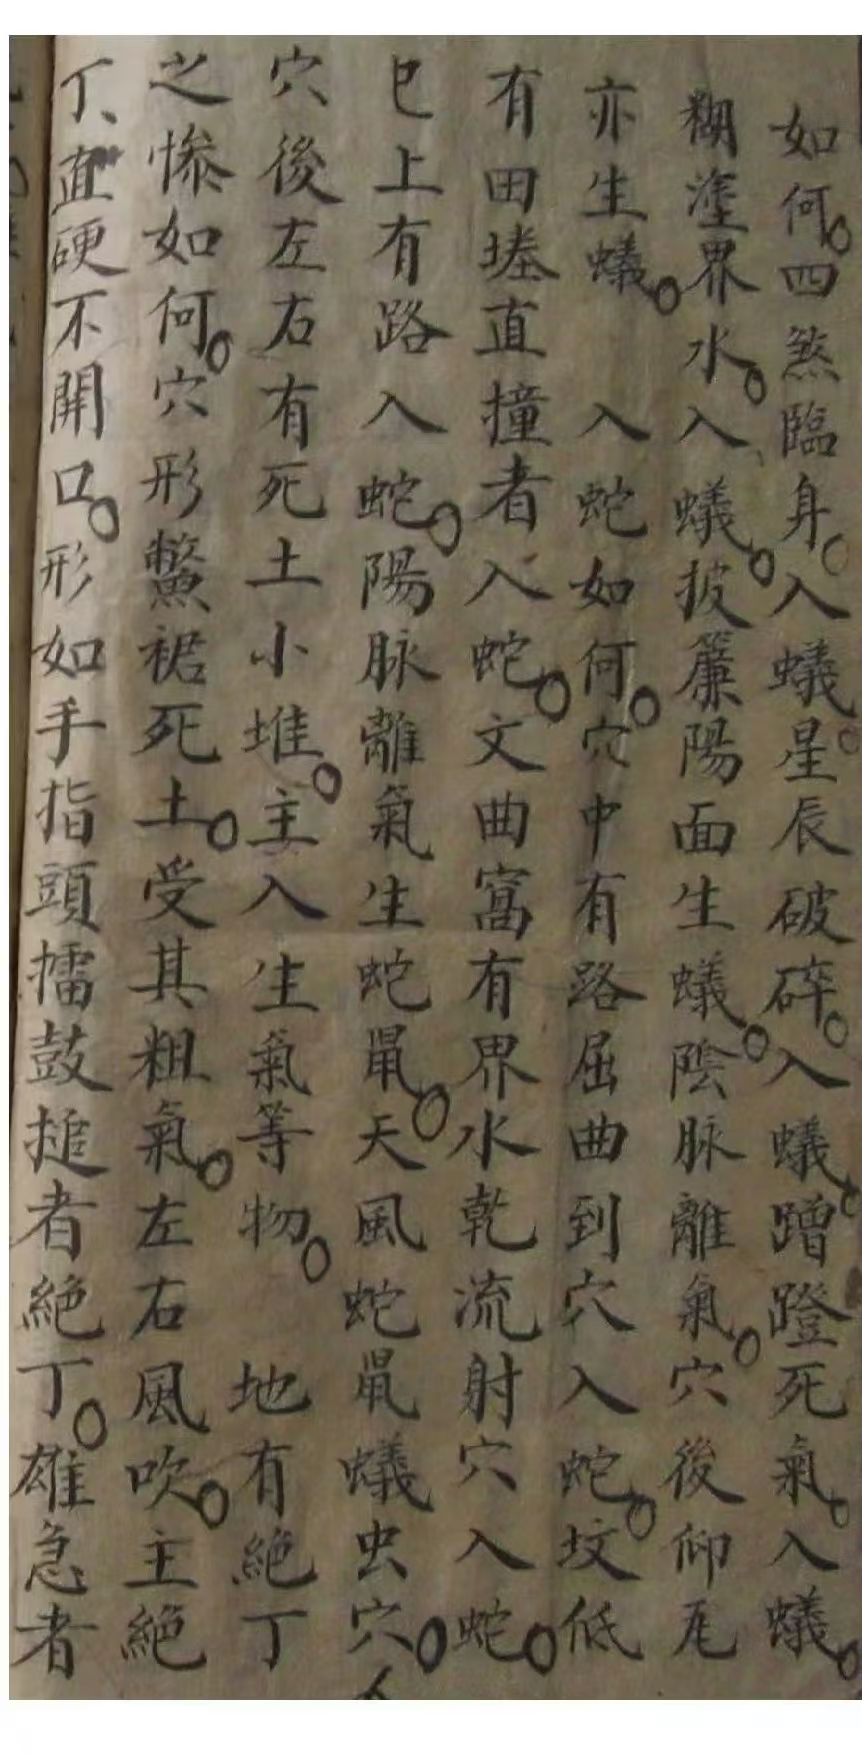 如何。四煞臨身。入蟻。星辰破碎。入蟻。蹭蹬死氣。入蟻。
糊塗界水。入蟻。披簾陽面生蟻。陰脉離氣。穴後仰瓦
亦生蟻。 入蛇如何。穴中有路屈曲到穴入蛇。坟低
有田塍直撞者入蛇。文曲窩有界水乾流射穴入蛇。
已上有路入蛇。陽脉離氣生蛇鼠。天風蛇鼠蟻虫穴。
穴後左右有死土小堆。主入生氣等物。 地有絕丁
之慘如何。穴形鱉裙死土。受其粗氣。左右風吹。主絕
丁、直硬不開口。形如手指頭擂鼓搥者絕丁。雄急者